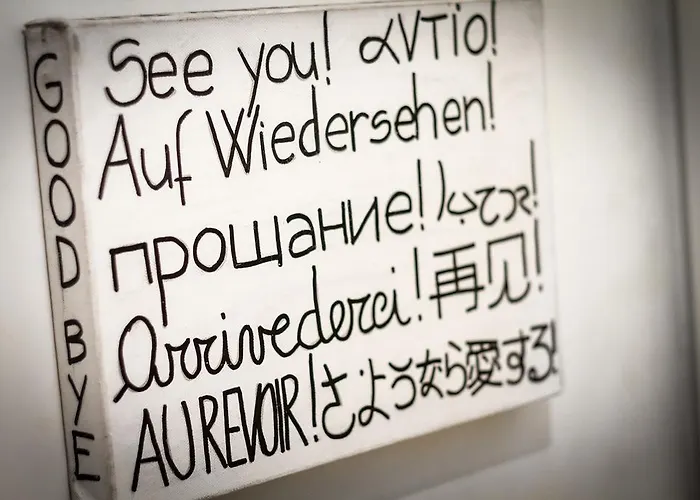 GOOD BYE
See you! αντίο!
Auf Wiedersehen!
прощание!
Arrivederci! 再见!
AU REVOIR! さようなら愛する!